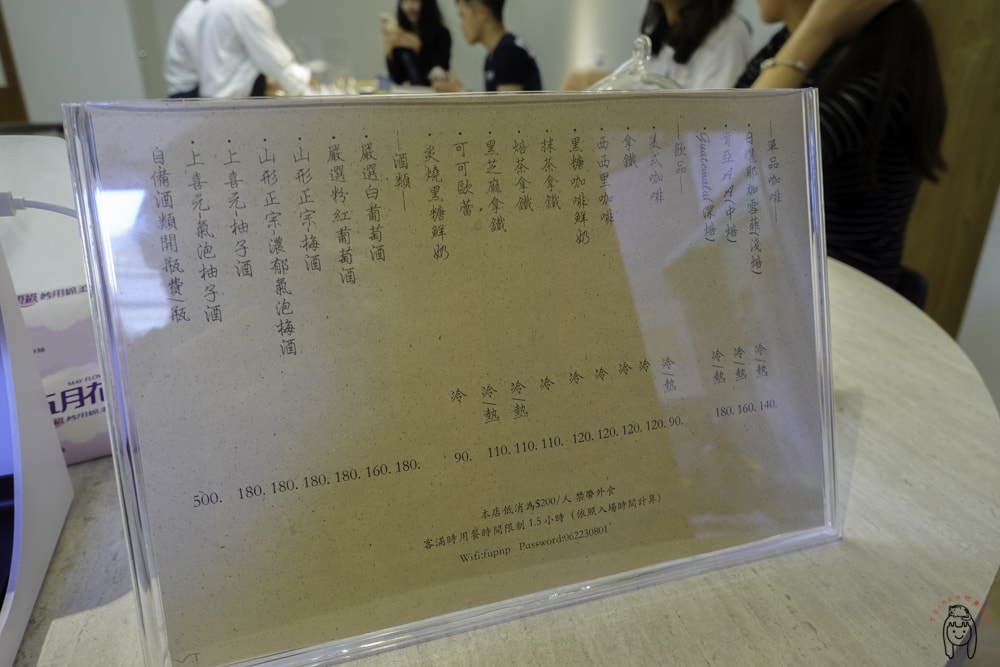 —單品咖啡—
・日曬耶加雪菲(淺焙) 冷/熱 140.
・肯亞AA(中焙) 冷/熱 160.
・Guatemala(深焙) 冷/熱 180.
—飲品—
・美式咖啡 冷/熱 90.
・拿鐵 冷 120.
・西西里咖啡 冷 120.
・黑糖咖啡鮮奶 冷 120.
・抹茶拿鐵 冷 120.
・焙茶拿鐵 冷 110.
・黑芝麻拿鐵 冷/熱 110.
・可可歐蕾 冷/熱 110.
・炙燒黑糖鮮奶 冷 90.
—酒類—
・嚴選白葡萄酒 180.
・嚴選粉紅葡萄酒 160.
・山形正宗梅酒 180.
・山形正宗-濃郁氣泡梅酒 180.
・上喜元-柚子酒 180.
・上喜元-氣泡柚子酒 180.
自備酒類開瓶費/瓶 500.
本店低消為$200/人 禁帶外食
客滿時用餐時間限制 1.5 小時（依照入場時間計算）
Wifi:fupnp Password:062230801
MAY FLOW
五月花